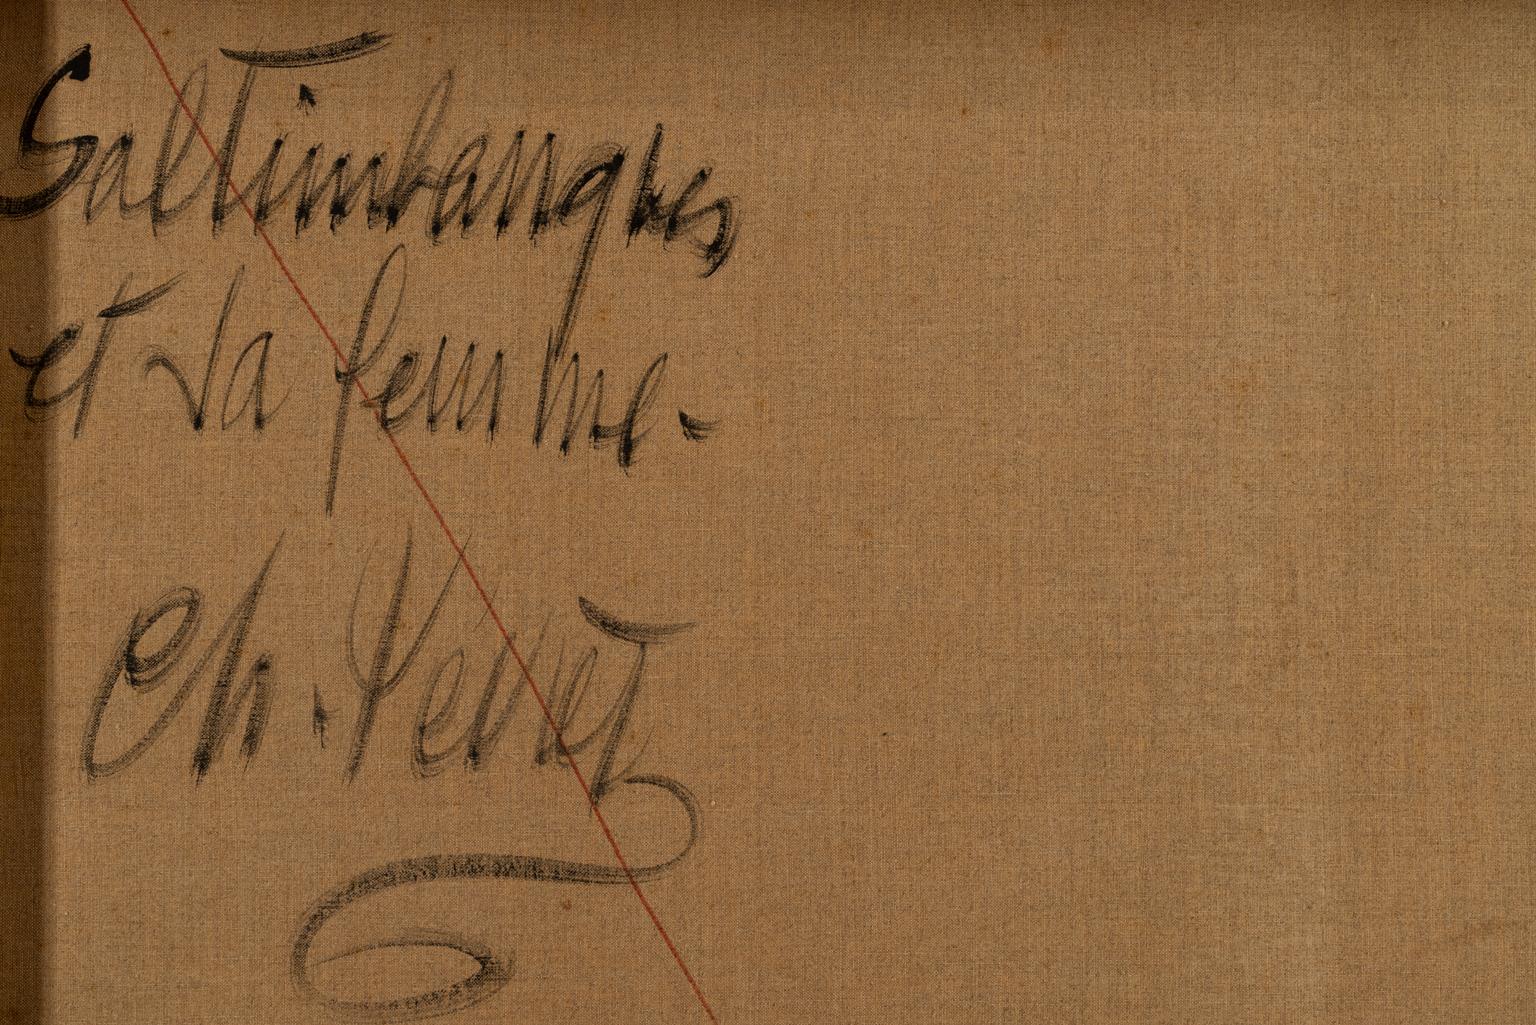 Saltimbanques
et sa femme.
Ch. Yenet